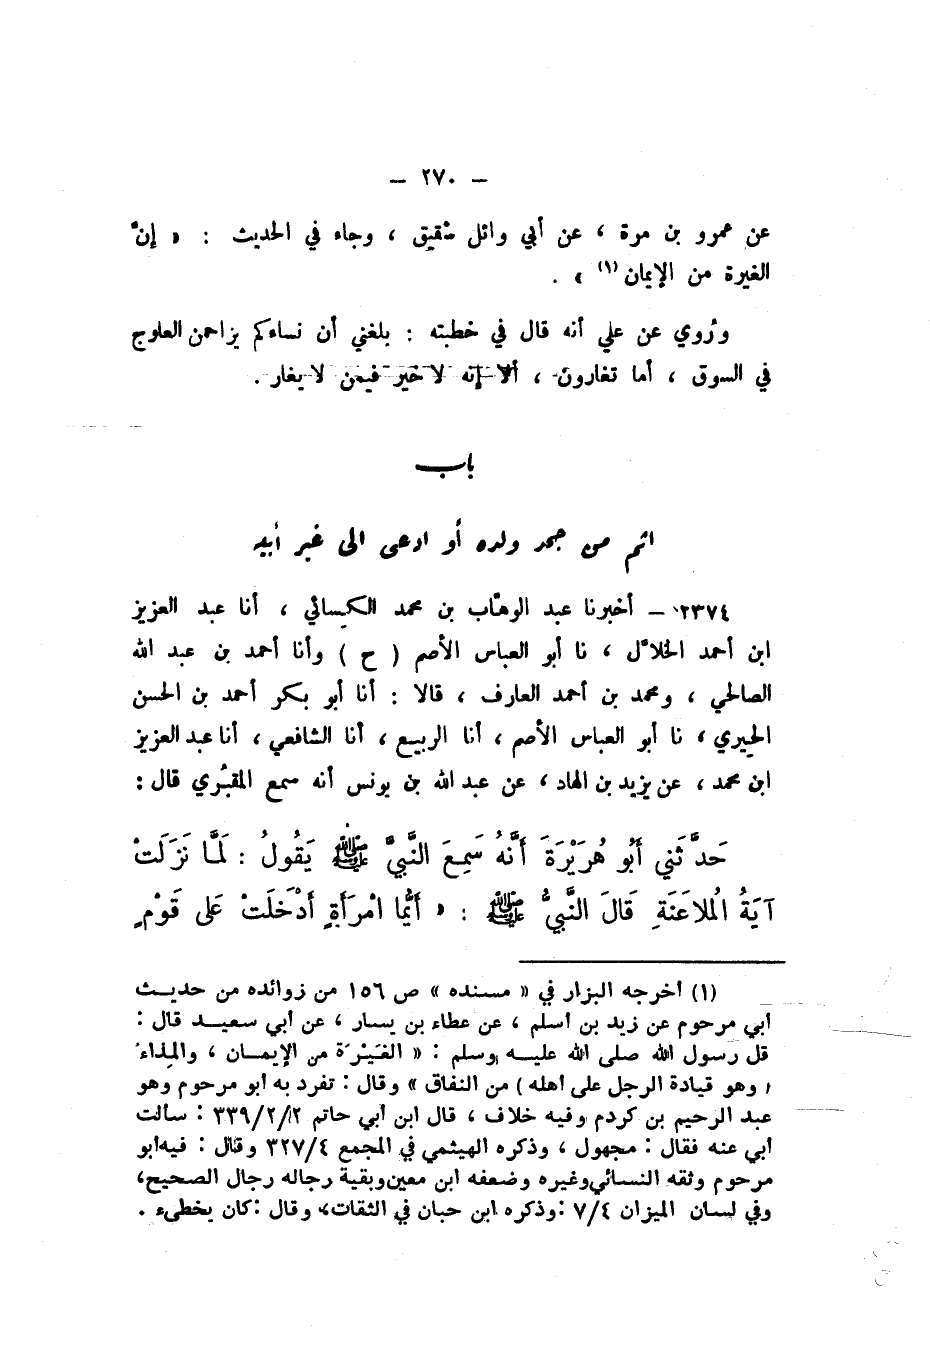 — ٢٧٠ —
عن عمرو بن مرة ، عن أبي وائل شقيق ، وجاء في الحديث : « إنّ
الغيرة من الإيمان (١) » .
ورُوي عن علي أنه قال في خطبته : بلغني أن نساءكم يزاحمن العلوج
في السوق ، أما تغارون ، ألا إنه لا خير فيمن لا يغار .
باب
اثم من جحد ولده أو ادعى الى غير أبيه
٢٣٧٤ – أخبرنا عبد الوهّاب بن محمد الكسائي ، أنا عبد العزيز
ابن أحمد الخلاّل ، نا أبو العباس الأصم ( ح ) وأنا أحمد بن عبد الله
الصالحي ، ومحمد بن أحمد العارف ، قالا : أنا أبو بكر أحمد بن الحسن
الحيري ، نا أبو العباس الأصم ، أنا الربيع ، أنا الشافعي ، أنا عبد العزيز
ابن محمد ، عن يزيد بن الهاد ، عن عبد الله بن يونس أنه سمع المقبُري قال :
حَدَّثَني أَبُو هُرَيْرَةَ أَنَّهُ سَمِعَ النَّبِيَّ ﷺ يَقُولُ : لَمَّا نَزَلَتْ
آيَةُ الْمُلاعَنَةِ قَالَ النَّبِيُّ ﷺ : « أَيُّما امْرَأَةٍ أَدْخَلَتْ عَلى قَوْمٍ
(١) أخرجه البزار في « مسنده » ص ١٥٦ من زوائده من حديث
أبي مرحوم عن زيد بن أسلم ، عن عطاء بن يسار ، عن أبي سعيد قال :
قل رسول الله صلى الله عليه وسلم : « الغَيْرَة من الإيمان ، والمِذاء
( وهو قيادة الرجل على أهله ) من النفاق » وقال : تفرد به أبو مرحوم وهو
عبد الرحيم بن كردم وفيه خلاف ، قال ابن أبي حاتم ٣٣٩/٢/٢ : سألت
أبي عنه فقال : مجهول ، وذكره الهيثمي في المجمع ٣٢٧/٤ وقال : فيه أبو
مرحوم وثقه النسائي وغيره وضعفه ابن معين وبقية رجاله رجال الصحيح ،
وفي لسان الميزان ٧/٤ : وذكره ابن حبان في الثقات ، وقال : كان يخطىء .